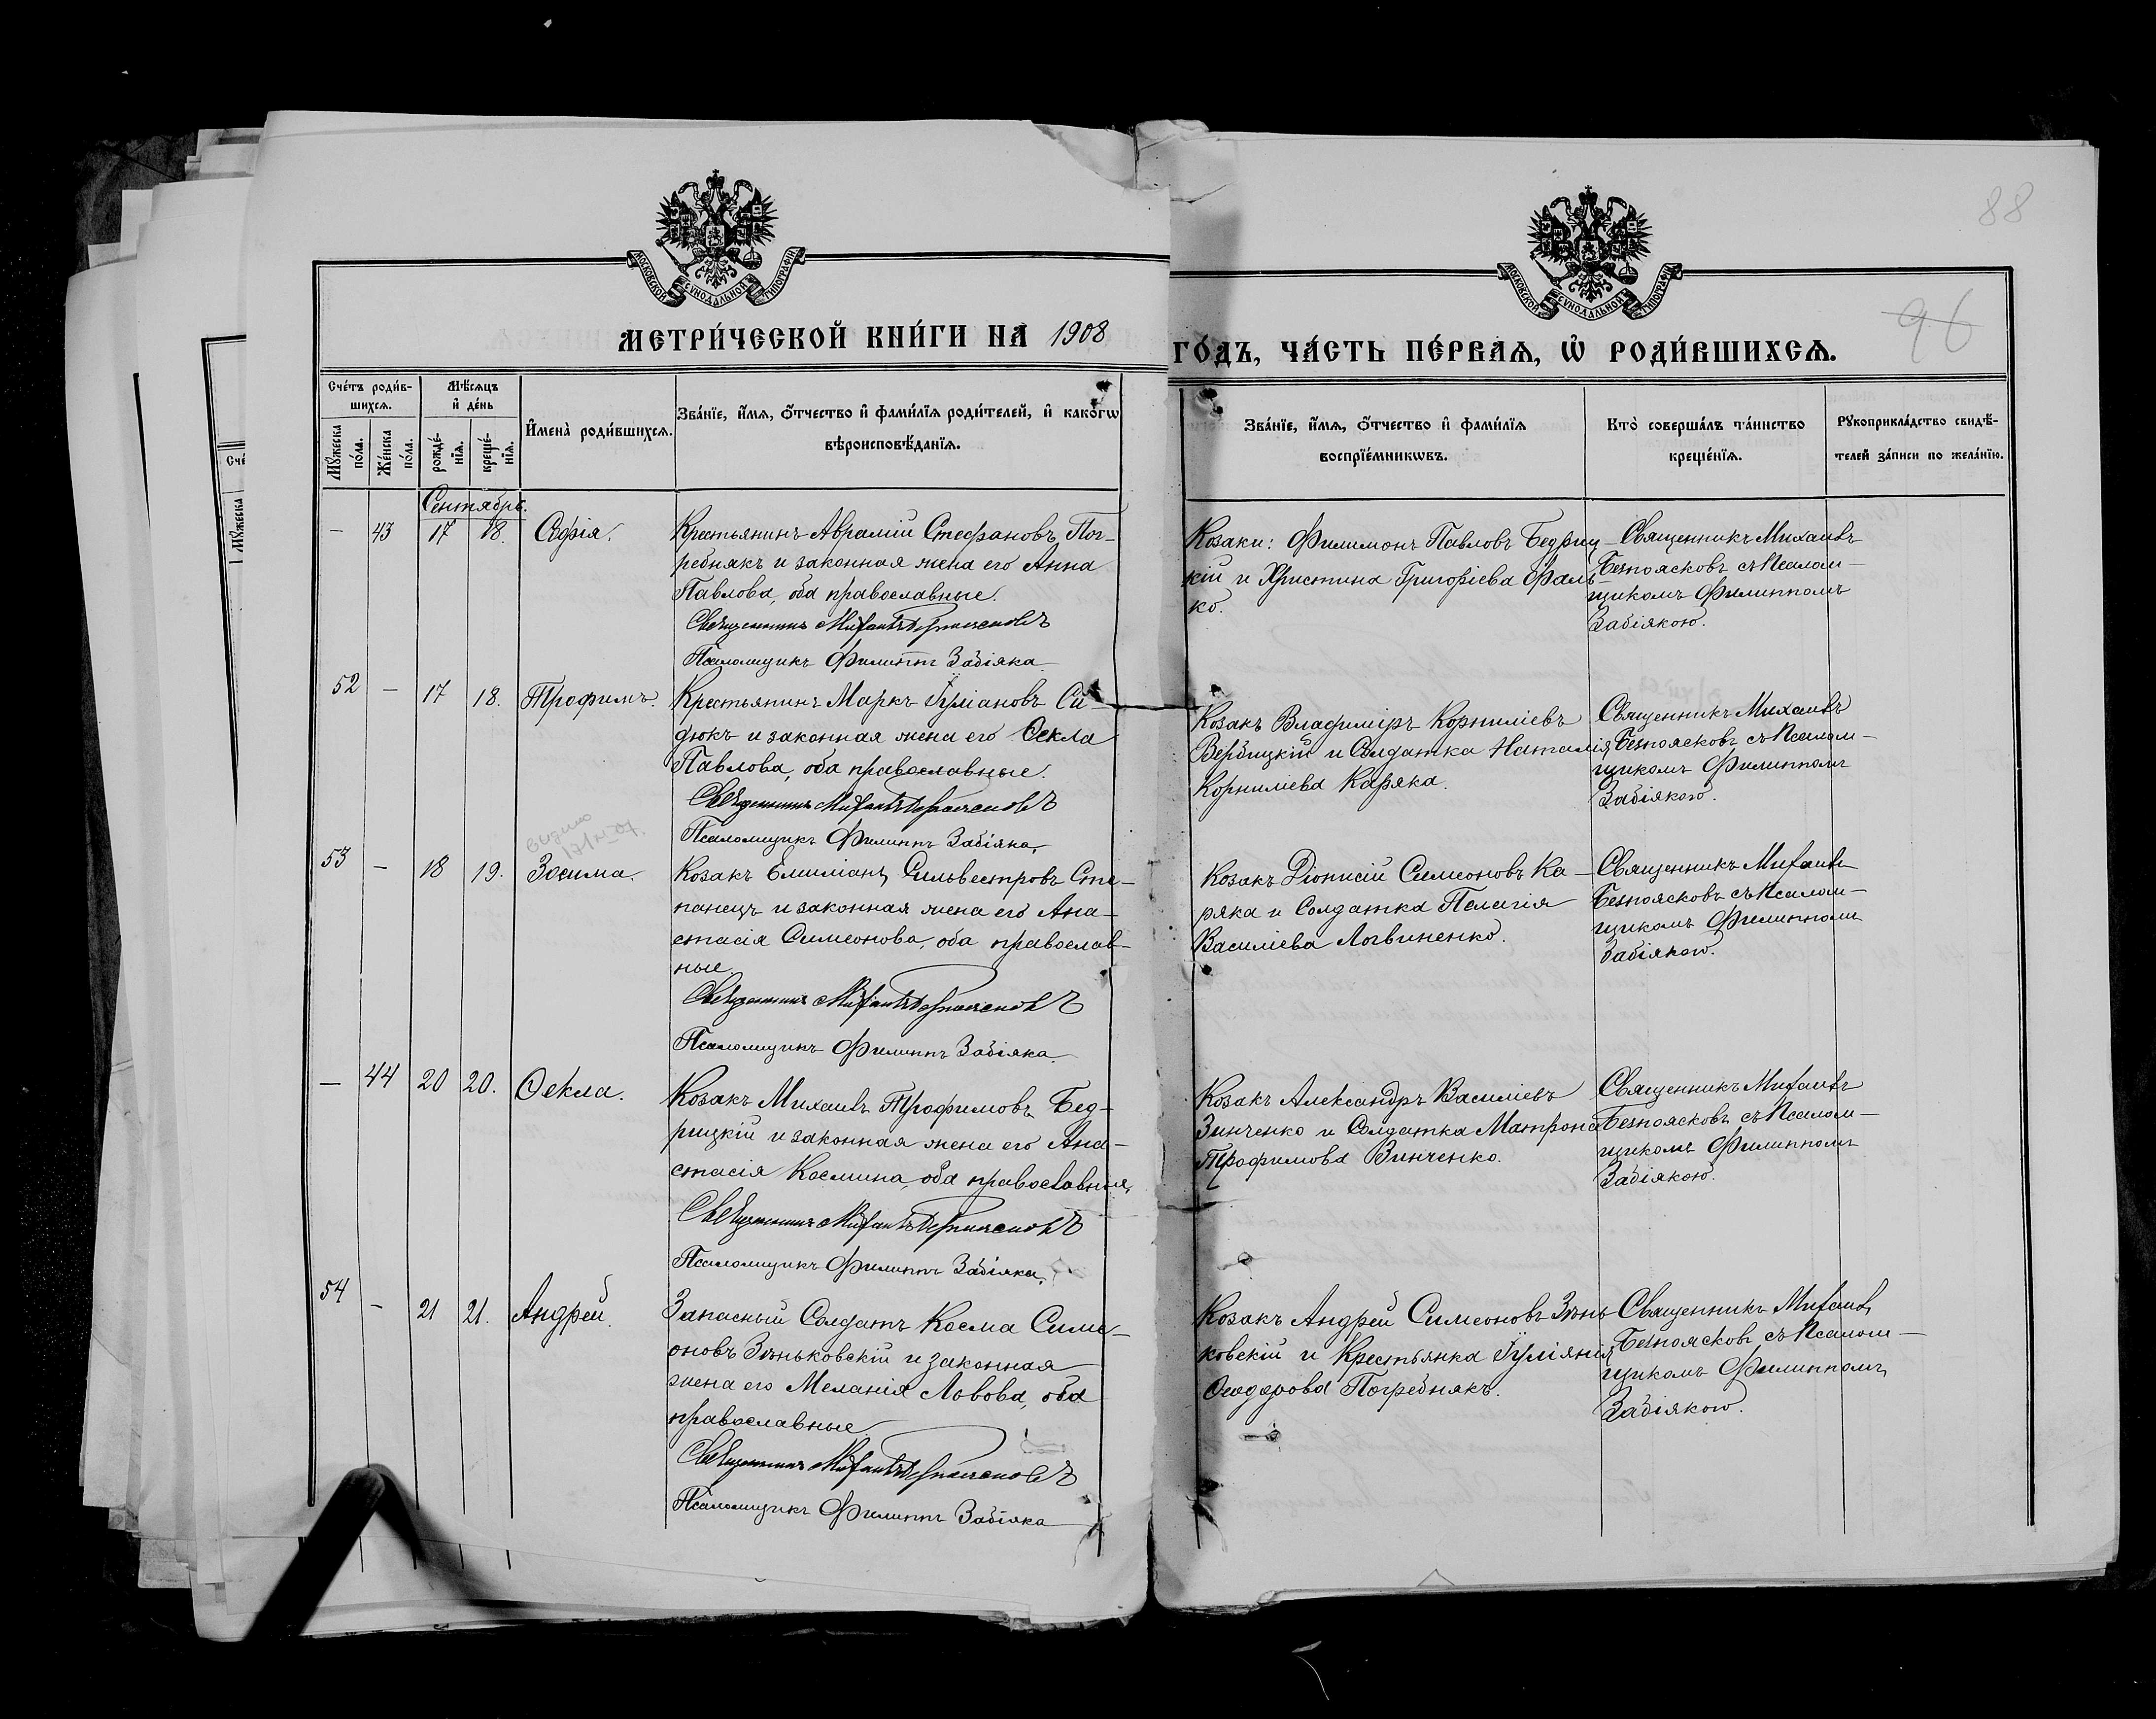 88
96
МОСКОВСКОЙ СѴНОДАЛЬНОЙ ТИПОГРАФІИ
МОСКОВСКОЙ СѴНОДАЛЬНОЙ ТИПОГРАФІИ
МЕТРИ́ЧЕСКОЙ КНИ́ГИ НА 1908
ГО́ДЪ, ЧА́СТЬ ПЕ́РВАЯ, Ѡ҆ РОДИ́ВШИХСЯ.
Сче́тъ роди́в-
шихся.
Мѣ́сяцъ
и҆ де́нь
Мꙋ́жеска по́ла.
Же́нска по́ла.
рожде́-нїя.
креще́-нїя.
И҆мена̀ роди́вшихся.
Зва́нїе, и҆́мя, ѻ҆́тчество и҆ фами́лїя роди́телей, и҆ како́гѡ
вѣроисповѣ́данїя.
Зва́нїе, и҆́мя, ѻ҆́тчество и҆ фами́лїя
воспрїе́мникѡвъ.
Кто̀ соверша́лъ та́инство
креще́нїя.
Рꙋкоприкла́дство свидѣ́-
телей за́писи по жела́нїю.
Сче
Мꙋ́жеска
Сентябрь.
— 43 17 18. Софія.
Крестьянинъ Аврамій Стефановъ Пог-
ребнякъ и законная жена его Анна
Павлова, оба православные.
Священникъ Михаилъ Безпоясковъ
Псаломщикъ Филиппъ Забіяка.
Козаки: Филимонъ Павловъ Бедриц-
кій и Христина Григоріева Фаль-
ко.
Священникъ Михаилъ
Безпоясковъ съ Псалом-
щикомъ Филиппомъ
Забіякою.
52 — 17 18. Трофимъ.
Крестьянинъ Маркъ Іуліановъ Си-
дюкъ и законная жена его Ѳекла
Павлова, оба православные.
Священникъ Михаилъ Безпоясковъ
Псаломщикъ Филиппъ Забіяка.
Козакъ Владиміръ Корниліевъ
Вербицкій и Солдатка Наталія
Корниліева Каряка.
Священникъ Михаилъ
Безпоясковъ съ Псалом-
щикомъ Филиппомъ
Забіякою.
53 — 18 19. Зосима.
Козакъ Емиліанъ Сильвестровъ Сте-
панецъ и законная жена его Ана-
стасія Симеонова, оба православ-
ные
Священникъ Михаилъ Безпоясковъ
Псаломщикъ Филиппъ Забіяка.
Козакъ Діонисій Симеоновъ Ка-
ряка и Солдатка Пелагія
Василіева Логвиненко.
Священникъ Михаилъ
Безпоясковъ съ Псалом-
щикомъ Филиппомъ
Забіякою.
— 44 20 20. Ѳекла.
Козакъ Михаилъ Трофимовъ Бед-
рицкій и законная жена его Ана-
стасія Космина, оба православные,
Священникъ Михаилъ Безпоясковъ
Псаломщикъ Филиппъ Забіяка.
Козакъ Александръ Василіевъ
Зинченко и Солдатка Матрона
Трофимова Зинченко.
Священникъ Михаилъ
Безпоясковъ съ Псалом-
щикомъ Филиппомъ
Забіякою.
54 — 21 21. Андрей.
Запасный Солдатъ Косма Симе-
оновъ Зѣньковскій и законная
жена его Меланія Львова, оба
православные.
Священникъ Михаилъ Безпоясковъ
Псаломщикъ Филиппъ Забіяка
Козакъ Андрей Симеоновъ Зѣнь-
ковскій и Крестьянка Іуліянія
Ѳеодорова Погребнякъ.
Священникъ Михаилъ
Безпоясковъ съ Псалом-
щикомъ Филиппомъ
Забіякою.